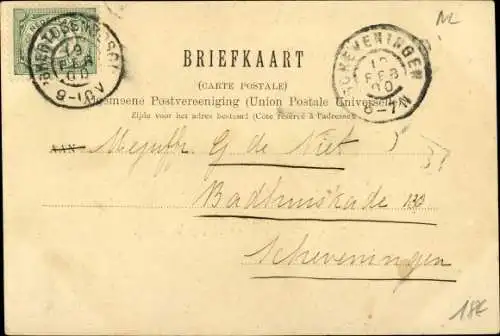 NL
'S HERTOGENBOSCH
19
FEB
00
8-10V
BRIEFKAART
SCHEVENINGEN
19
FEB
00
6-7N
(CARTE POSTALE)
Algemeene Postvereeniging (Union Postale Universelle)
Zijde voor het adres bestemd (Côte réservé à l'adresse)
AAN
Mejuffr. G de Niet
Badhuiskade 139
Scheveningen
18€